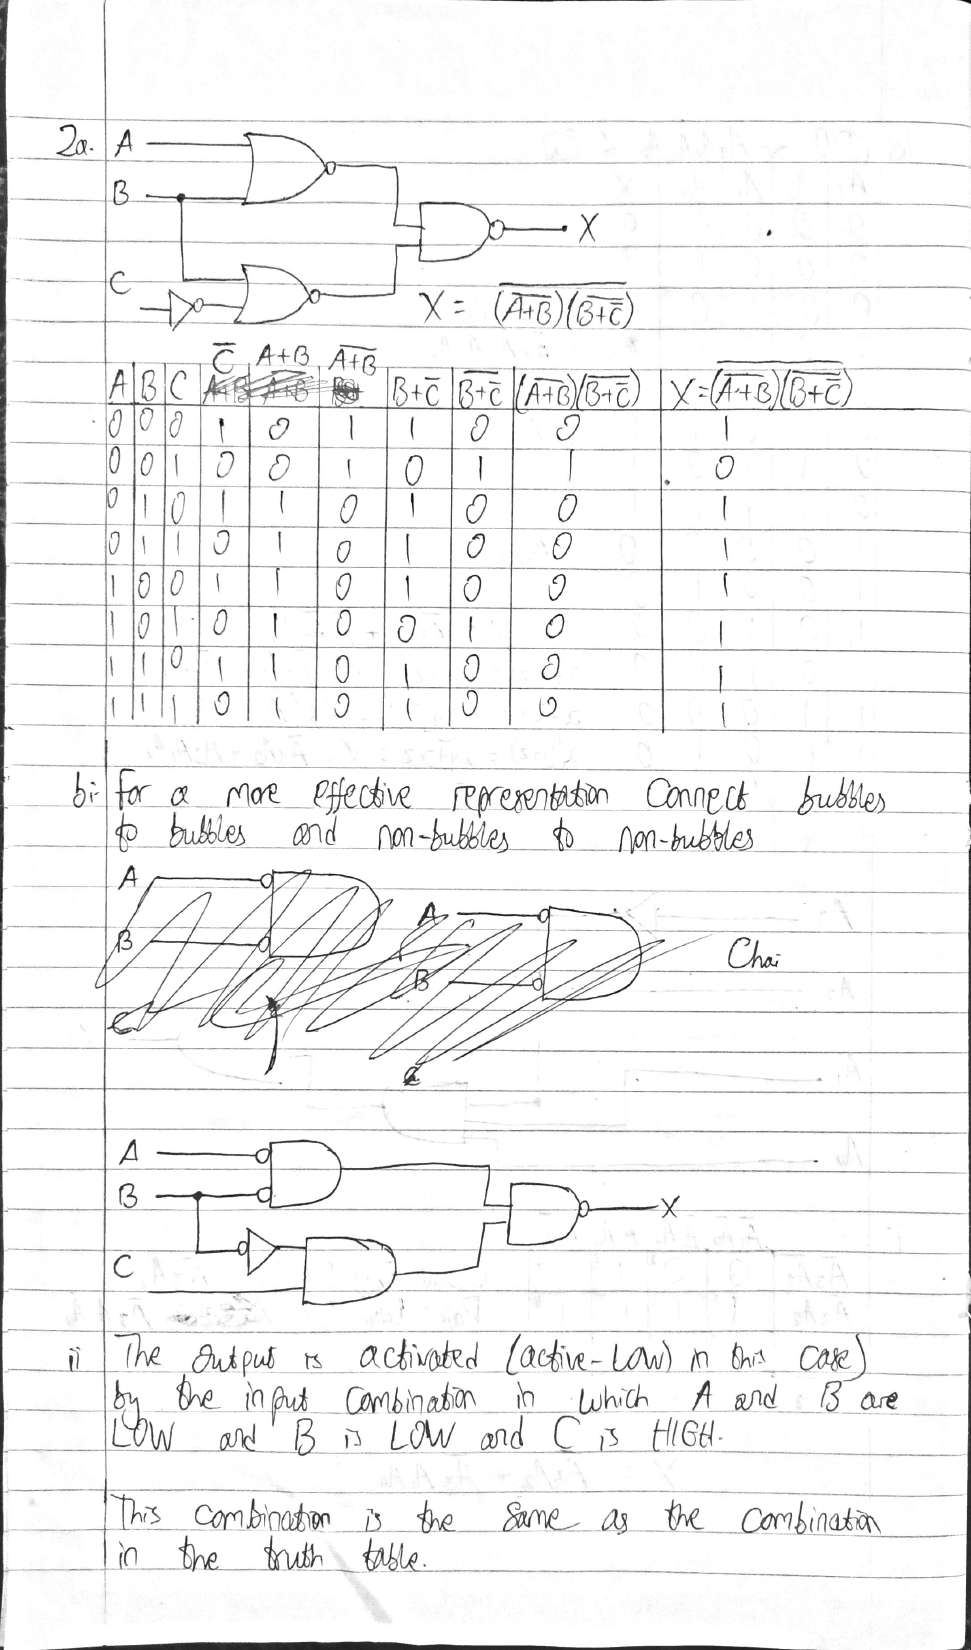 2a. A
B
X
C
X = \overline{(\overline{A+B})(\overline{B+\overline{C}})}
A B C \overline{C} A+B \overline{A+B} B+\overline{C} \overline{B+\overline{C}} (\overline{A+B})(\overline{B+\overline{C}}) X=\overline{(\overline{A+B})(\overline{B+\overline{C}})}
0 0 0 1 0 1 1 0 0 1
0 0 1 0 0 1 0 1 1 0
0 1 0 1 1 0 1 0 0 1
0 1 1 0 1 0 1 0 0 1
1 0 0 1 1 0 1 0 0 1
1 0 1 0 1 0 0 1 0 1
1 1 0 1 1 0 1 0 0 1
1 1 1 0 1 0 1 0 0 1
bi- for a more effective representation Connect bubbles
to bubbles and non-bubbles to non-bubbles
A
A
B
Chai
B
C
A
B
X
C
ii The output is activated (active-Low) in this case)
by the input combination in which A and B are
LOW and B is LOW and C is HIGH.
This combination is the same as the combination
in the truth table.